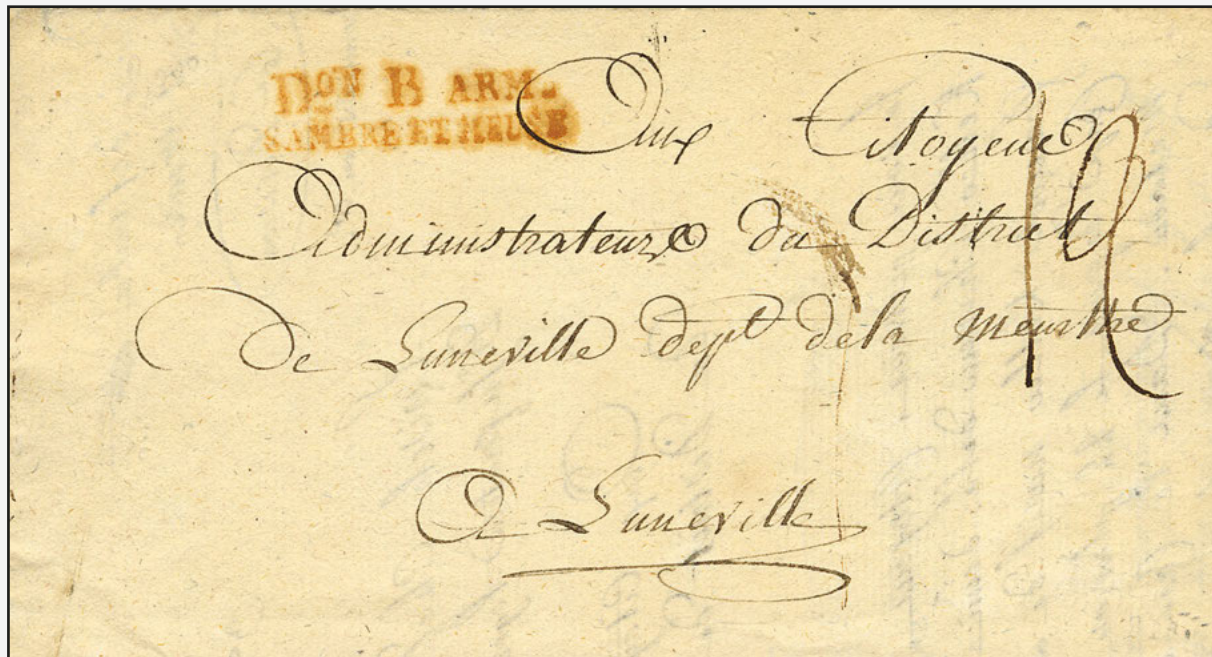 Dᵒⁿ B ARM.
SAMBRE ET MEUSE
Aux Citoyens
Administrateurs du District
De Luneville dept dela Meurthe
A Luneville